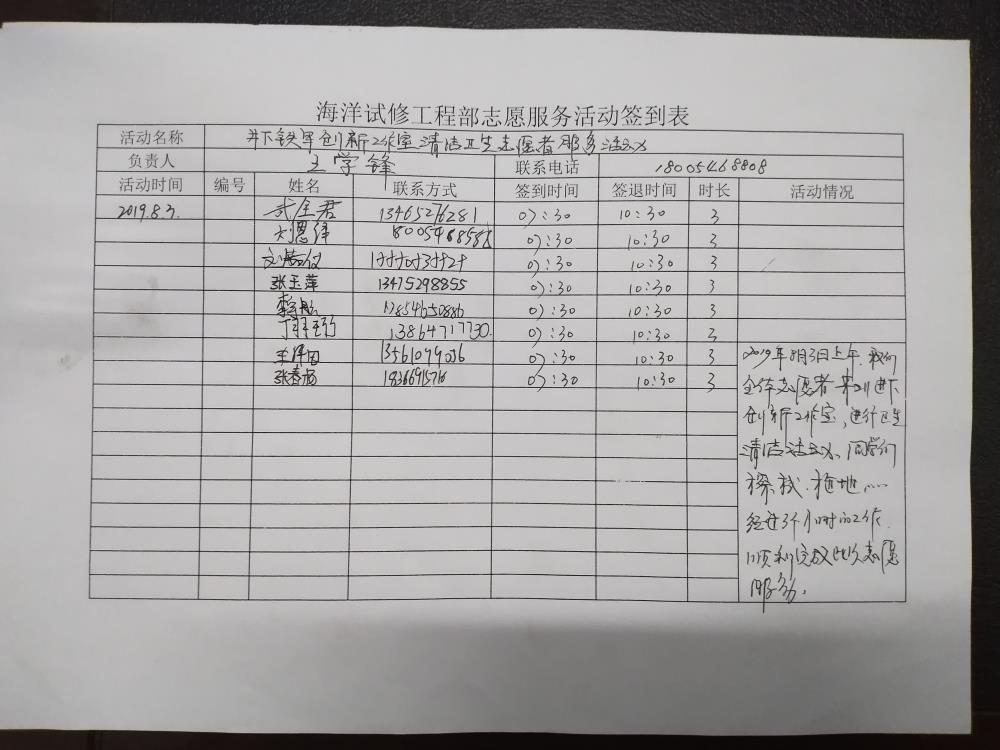 海洋试修工程部志愿服务活动签到表
活动名称 井下铁军创新工作室清洁卫生志愿者服务活动
负责人 王学锋 联系电话 18005468808
活动时间 编号 姓名 联系方式 签到时间 签退时间 时长 活动情况
2019.8.3. 武全君 13465276281 07:30 10:30 3
刘恩泽 07:30 10:30 3
07:30 10:30 3
张玉萍 13475298855 07:30 10:30 3
1854650886 07:30 10:30 3
13864717730 07:30 10:30 3
13561099036 07:30 10:30 3
张春杨 07:30 10:30 3
2019年8月3日上午,我们
全体志愿者来到井下
创新工作室,进行卫生
清洁活动、同学们
擦栈、拖地……
经过3个小时的工作
顺利完成此次志愿
服务。